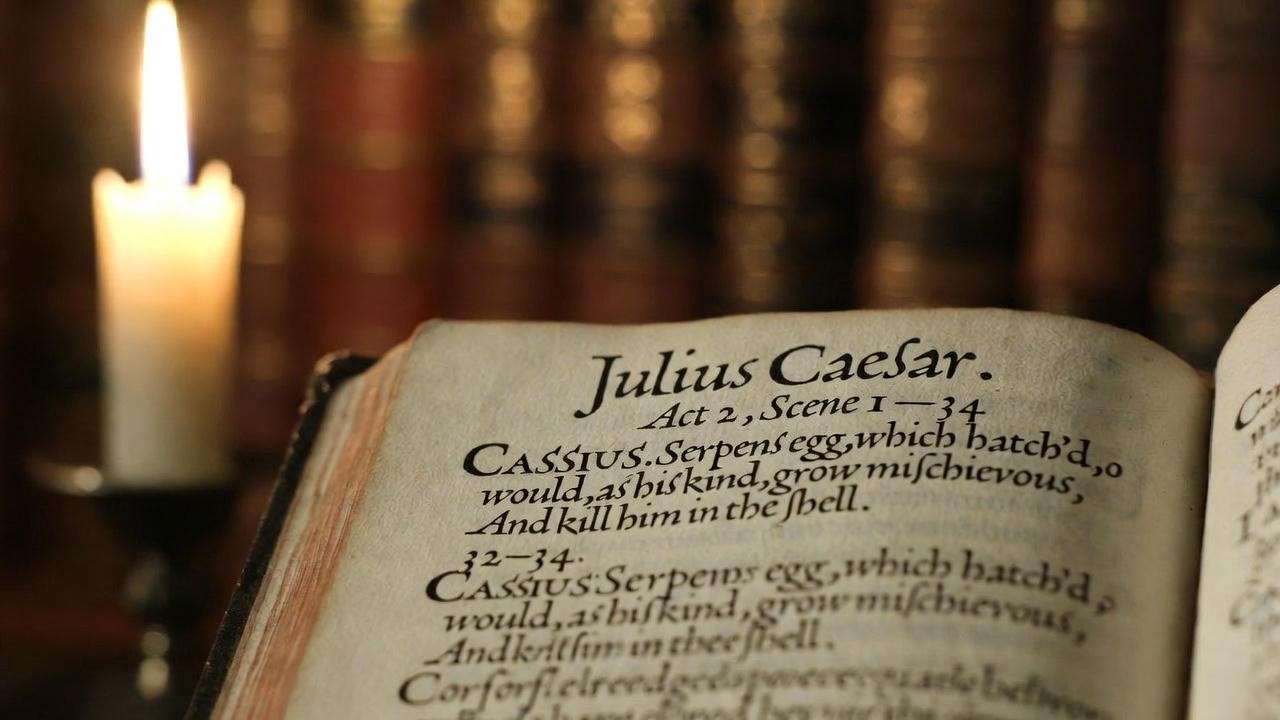 Julius Caeſar.
Act 2, Scene 1—34
CASSIUS. Serpens egg, which hatch'd, o
would, as his kind, grow miſchievous,
And kill him in the ſhell.
32—34.
CASSIUS: Serpems egg, which hatch'd,
would, as hiſkind, grow miſchievous,
in thee ſhell.